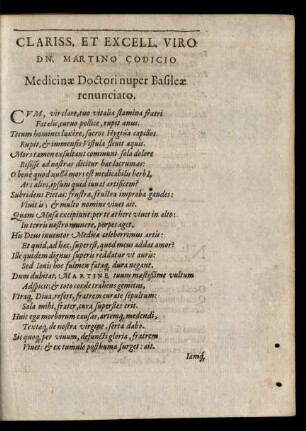 CLARISS. ET EXCELL. VIRO
DN. MARTINO CODICIO
Medicinæ Doctori nuper Basileæ
renunciato.
CVM, vir clare, tuo vitalia stamina fratri
Fatalis, curuo pollice, rupit anus.
Tecum homines luxêre, sacros Hygeia capillos
Rupit, & immensis Vistula fleuit aquis.
Mors tamen exsultant communi sola dolere
Risisse ad nostras dicitur hæc lacrumas:
O benè quod nulla mors est medicabilis herbâ,
Ars alios, ipsum quid iuuat artificem?
Subridens Pietas: frustra, frustra improba gaudes:
Viuit is, & multo nomine viuet ait.
Quàm Musæ excipiunt: per te æthere viuet in alto:
In terris nostro munere, perpes aget.
His Deus inuentor Medicæ celeberrimus artis:
Et quid, ad hæc, superest, quod meus addas amor?
Ille quidem dignus superis reddatur vt auris:
Sed Ionis hoc fulmen fataq; dura negant.
Dum dubitat, MARTINE tuum mæstissime vultum
Adspicit: & toto corde trahens gemitus,
Vtraq; Diua, refert, fratrem curate sepultum:
Sola mihi, frater, cura superstes erit.
Huic ego morborum causas, artemq; medendi,
Textaq; de nostra virgine, serta dabo.
Sic quoq; per viuum, defuncti gloria, fratrem
Viuet: & ex tumulo posthuma surget: ait.
Iamq;